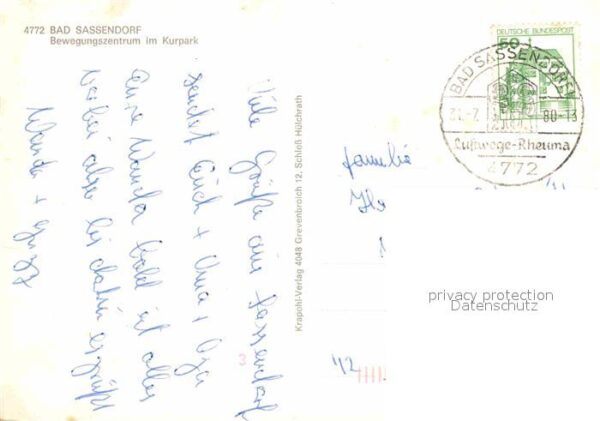 4772 BAD SASSENDORF
Bewegungszentrum im Kurpark
Viele Grüße aus Sassendorf
sendet Euch + Oma + Opa
Eure Wanda bald ist alles
vorbei also bis dahin es grüßt
Wanda +
Krapohl-Verlag 4048 Grevenbroich 12, Schloß Hülchrath
DEUTSCHE BUNDESPOST
50
BAD SASSENDORF
31.-7. 80-13
Luftwege-Rheuma
4772
Familie
42
3
privacy protection
Datenschutz